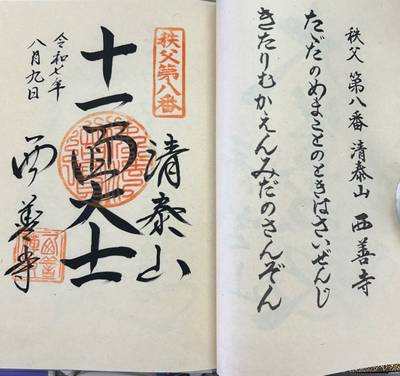 秩父 第八番 清泰山 西善寺
たゞたのめまことのときはさいぜんじ
きたりむかえんみだのさんぞん
秩父第八番
清泰山
十一面大士
西善寺
令和七年
八月九日